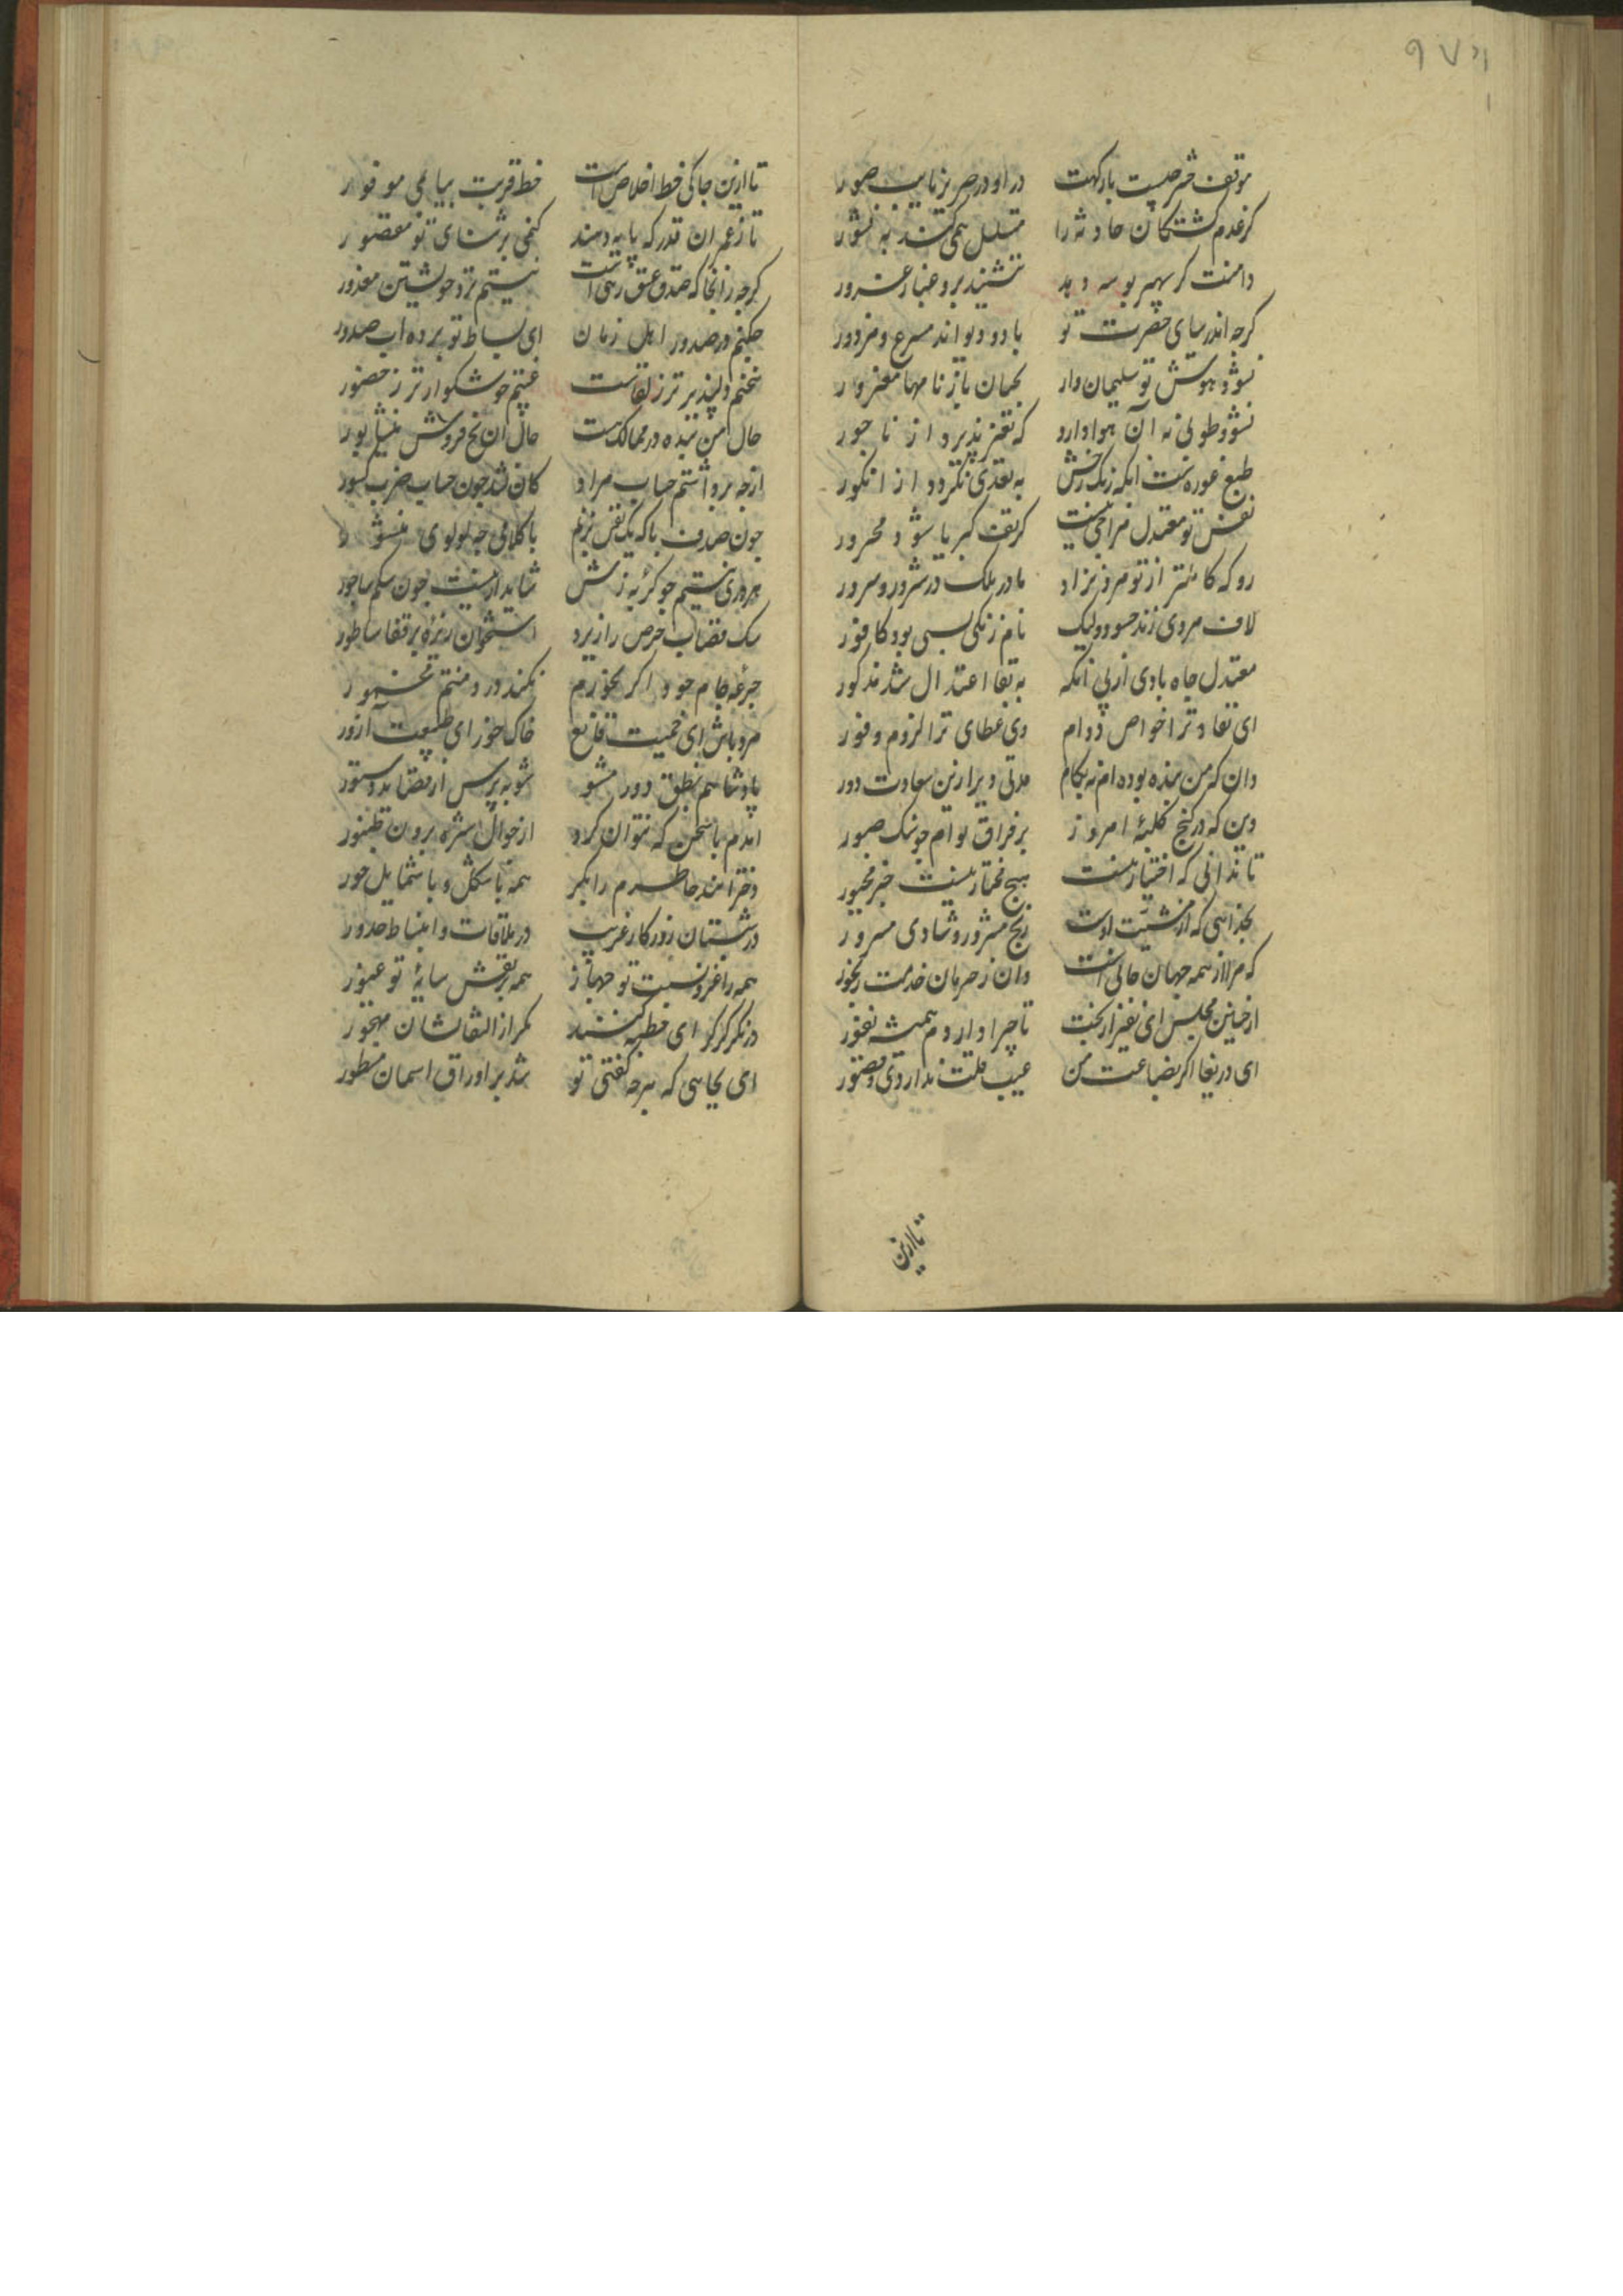 موقف حشر چیست بارکهت
در او در صریر نایب صور
کز عدم کشتکان حادثه را
متسلسل همی کند به نشور
دامنت کر سپهر بوسه دهد
ننشیند برو غبار غرور
کرچه اندر سبای حضرت تو
باد و دیو اند مسرع و مزدور
نشود هوش تو سلیمان وار
بچنان بازنامها مغرور
نشود طوطی نه آن هوا دارد
که تغیر پذیرد از ناجور
طبع غوره است انکه رنک رخش
به تعدی نکردد از انکور
نفس تو معتدل مزاجی نیست
کز تف کبریا شود محرور
رو که کاملتر از تو مرد نزاد
مادر ملک در سرور و سرور
لاف مردی زند حسود ولیک
نام زنکی بسی بود کافور
معتدل جاه بادی از پی انکه
به بقا اعتدال شد مذکور
ای بقا و ترا خواص دوام
وی عطای ترا لزوم وفور
دان که من بنده بوده ام نه بکام
مدتی دیر ازین سعادت دور
وین که در کنج کلبهٔ امروز
بر فراق توام چو سنک صبور
تا ندانی که اختیار منست
هیچ مختار نیست جز مجبور
بخدایی که از مشیت اوست
رنج مسرور و شادی مسرور
که مرا از همه جهان جانیست
وان ز حرمان خدمت رنجور
از چنین مجلس ای نفیر از بخت
تا چرا دارم همیشه نفور
ای دریغا اکر بضاعت من
عیب قلت ندارد وی و قصور
تا ازین
تا ازین جا کی خط اخلاص است
خط قربت بیابمی موفور
تا ز عمر ان قدر که پایه دهند
کنمی بر ثنای تو مقصور
کرچه زانجا که صدق عشق رهی است
نیستم نزد خویشتن معذور
حکمم در صدور اهل زمان
ای بساط تو برده اب صدور
سخنم دلپذیرتر ز لقاست
غیبتم خوشکوارتر ز حضور
حال من بنده در ممالک هست
حال ان یخ فروش نیشابور
از چه برداشتم حساب مراد
کان نشد چون حساب ضرب کسور
چون صدف باکه یک نفس بزنم
با کلامی چو لولوی منثور
هر دری نیستم چو کربه زنش
شاید ار نیست چون سکم ساجور
سک قصاب حرص را ز برد
استخوان ریزهٔ بر قفا ساطور
جرعه جام جود اکر بخورم
نکند درد منتم مخمور
مرد باش ای حمیت قانع
خاک خور ای طبیعت آزور
پادشاهم بنطق دور مشو
شو بپرس از قصاید دستور
امدم با سخن که نتوان کرد
از جوال شره برون طنبور
دختر امند خاطرم را بکر
همه با شکل و با شمایل حور
در شبستان روزکار غریب
در ملاقات و انبساط حذور
همه را غز و نسبت تو جهاز
همه بر نقش سایهٔ تو غیور
در نکر کر کرای خطبه کنند
مکر از التفاتشان مهجور
ای بجایی که هرچه کفتی تو
شد بر اوراق اسمان مسطور